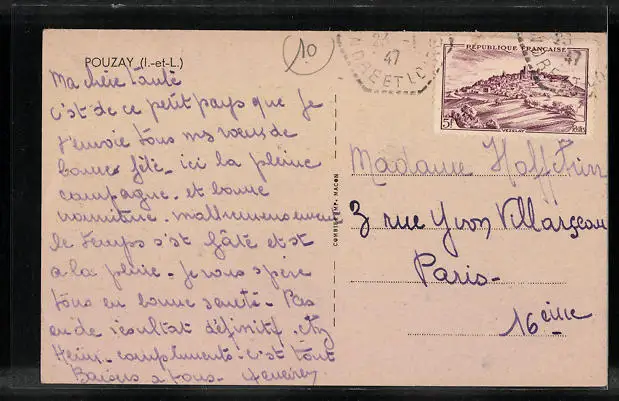 POUZAY (I.-et-L.)
10
Ma chère tante
c'est de ce petit pays que je
t'envoie tous mes vœux de
bonne fête. ici la pleine
campagne. et bonne
nourriture. malheureusement
le temps s'est gâté et est
a la pluie. Je vous espère
tous en bonne santé. Pas
eu de résultat définitif. chez
compliments. c'est tout
Baisers a tous.
COMBIER IMP. MACON
47
INDRE ET LOIRE
RÉPUBLIQUE FRANÇAISE
5F
VEZELAY
47
Madame
3 rue Yvon Villarceau
Paris-
16 eme